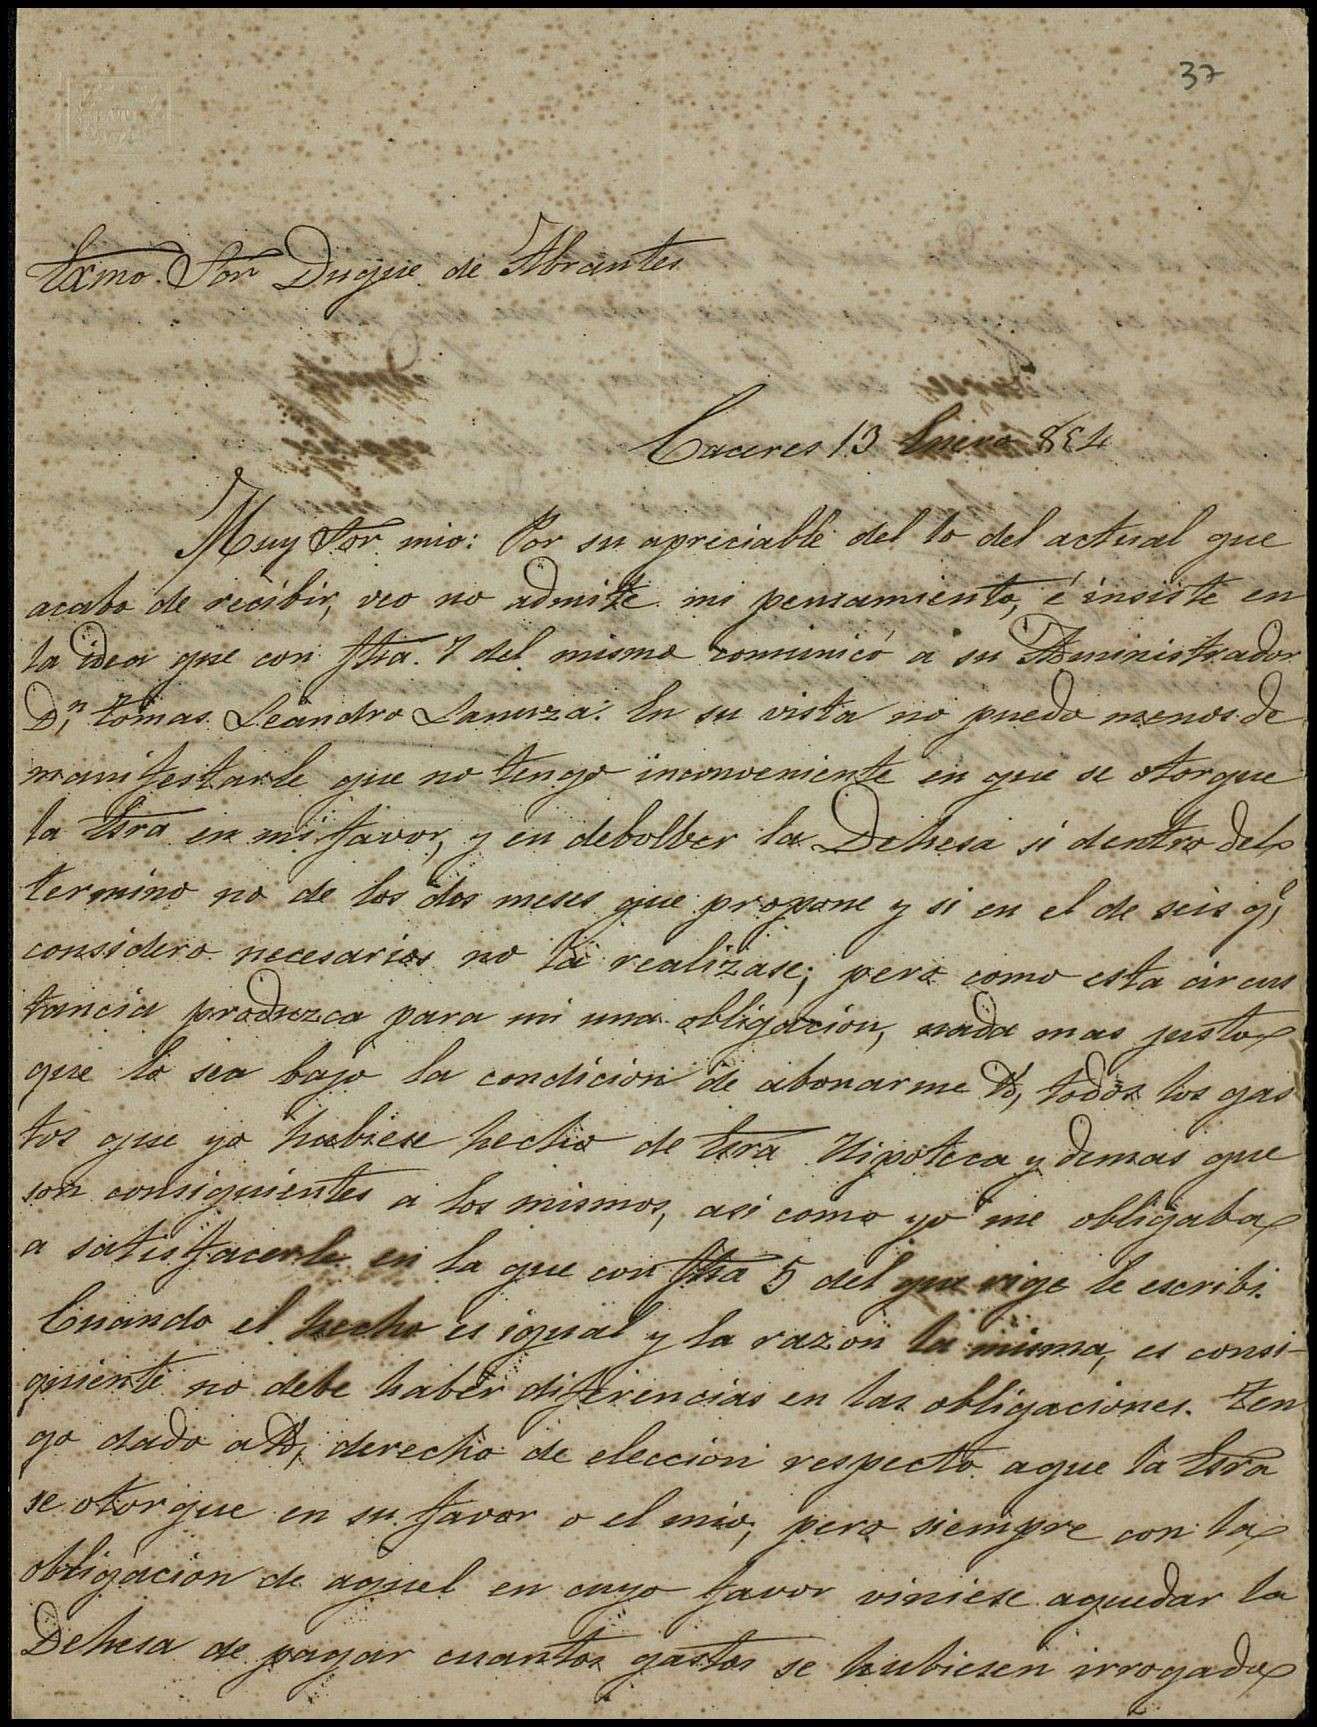 37
Exmo. Sor Duque de Abrantes
Caceres 13 Enero 834
Muy Sor mio: Por su apreciable del 10 del actual que
acabo de recibir, veo no admite mi pensamiento, é insiste en
la idea que con fha. 7 del mismo comunicó a su Administrador
Dn. Tomas Leandro Lanuza. En su vista no puedo menos de
manifestarle que no tengo inconveniente en que se otorgue
la Esra en mi favor, y en debolber la Dehesa si dentro del
termino no de los dos meses que propone y si en el de seis q.e
considero necesarios no la realizase; pero como esta circus
tancia produzca para mi una obligacion, nada mas justo
que lo sea bajo la condicion de abonarme V, todos los gas
tos que yo hubiese hecho de Esra Hipoteca y demas que
son consiguientes a los mismos, asi como yo me obligaba
a satisfacerle en la que con fha 5 del que rige le escribi.
Cuando el hecho es igual y la razon la misma, es consi-
guiente no debe haber diferencias en las obligaciones. Ten
go dado a V, derecho de eleccion respecto aque la Esra
se otorgue en su favor o el mio, pero siempre con la
obligacion de aquel en cuyo favor viniese aquedar la
Dehesa de pagar cuantos gastos se hubiesen irrogado